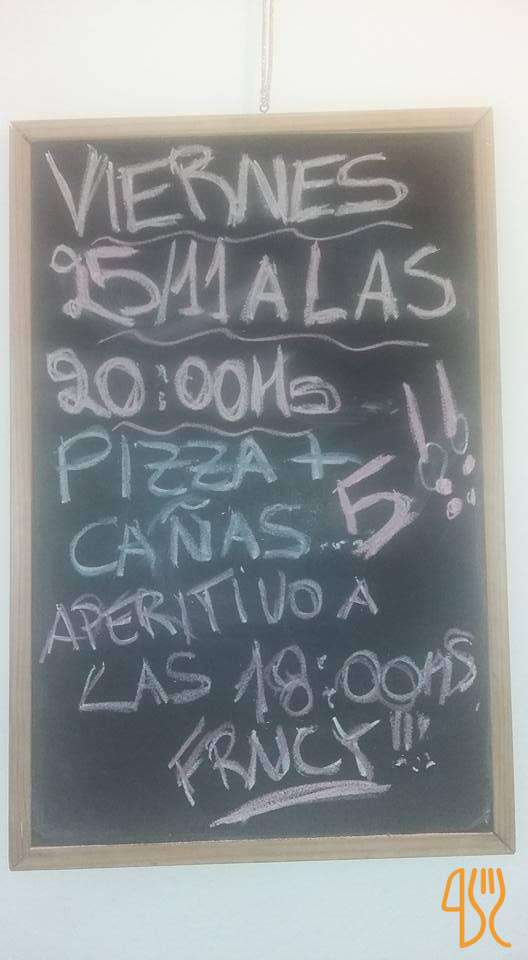 VIERNES
25/11 A LAS
20:00Hs
PIZZA +
CAÑAS...5!!
APERITIVO A
LAS 18:00HS
FRNCY!!!